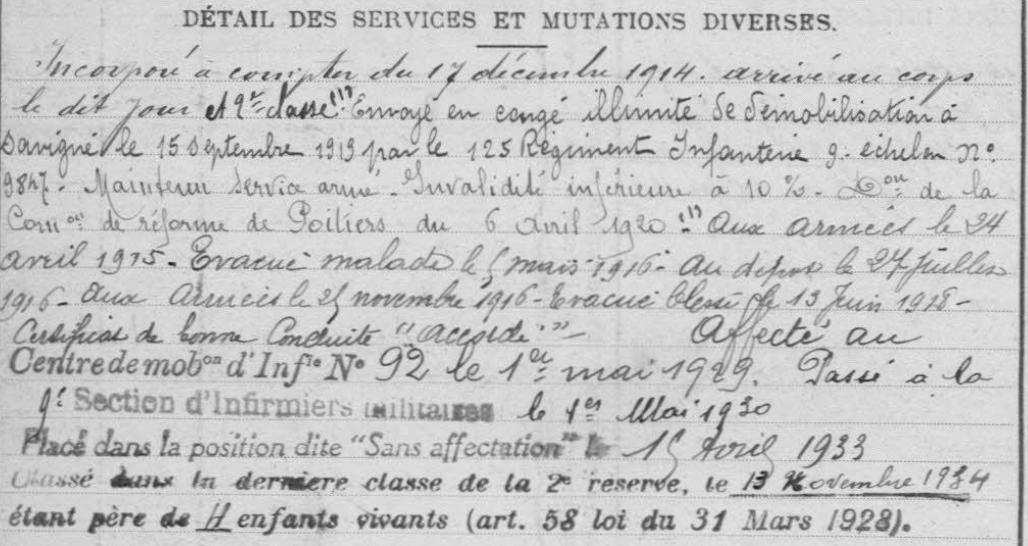 DÉTAIL DES SERVICES ET MUTATIONS DIVERSES.
Incorporé à compter du 17 décembre 1914. arrivé au corps
le dit jour et 2e classe (1) Envoyé en congé illimité de démobilisation à
Savigné le 15 Septembre 1919 par le 125 Régiment Infanterie 9. échelon No.
9847. Maintenu Service armé. Invalidité inférieure à 10 %. Don de la
Comon de réforme de Poitiers du 6 Avril 1920 (1) Aux armées le 24
avril 1915. Evacué malade le 5 mars 1916. au depot le 27 juillet
1916. Aux Armées le 25 novembre 1916. Evacué blessé le 13 Juin 1918.
Certificat de bonne Conduite "Accordé". Affecté au
Centre de mobon d'Infie No 92 le 1er mai 1929. Passé à la
9e Section d'Infirmiers militaires le 1er Mai 1930
Placé dans la position dite "Sans affectation" le 15 Avril 1933
Classé dans la dernière classe de la 2e réserve, le 13 Novembre 1934
étant père de 4 enfants vivants (art. 58 loi du 31 Mars 1928).